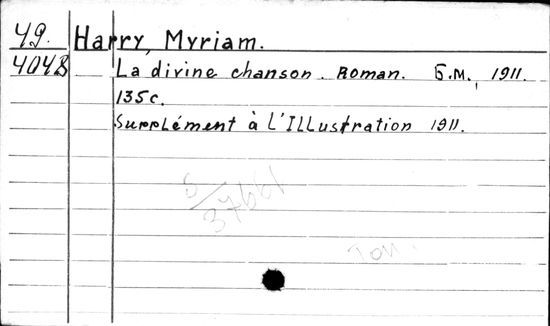 49. Harry, Myriam.
4048 La divine chanson. Roman. Б.М., 1911.
135c.
Supplément à L'Illustration 1911.
5/37661